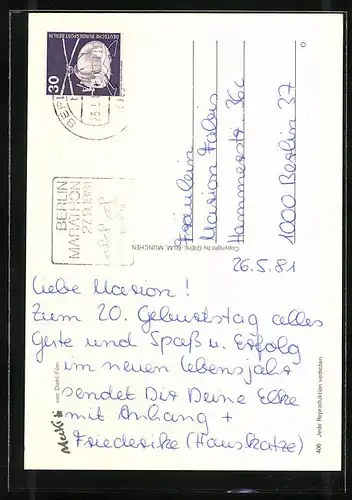 DEUTSCHE BUNDESPOST BERLIN
30
BERLIN
MARATHON
27.9.1981
Fräulein
Marion
Hammerstr. 36c
1000 Berlin 37
Copyright by Diehl-FILM, MÜNCHEN
26.5.81
Liebe Marion!
Zum 20. Geburtstag alles
Gute und Spaß u. Erfolg
im neuen Lebensjahr
sendet Dir Deine Elke
mit Anhang +
Friederike (Hauskatze)
Mecki von Diehl-Film
406 Jede Reproduktion verboten